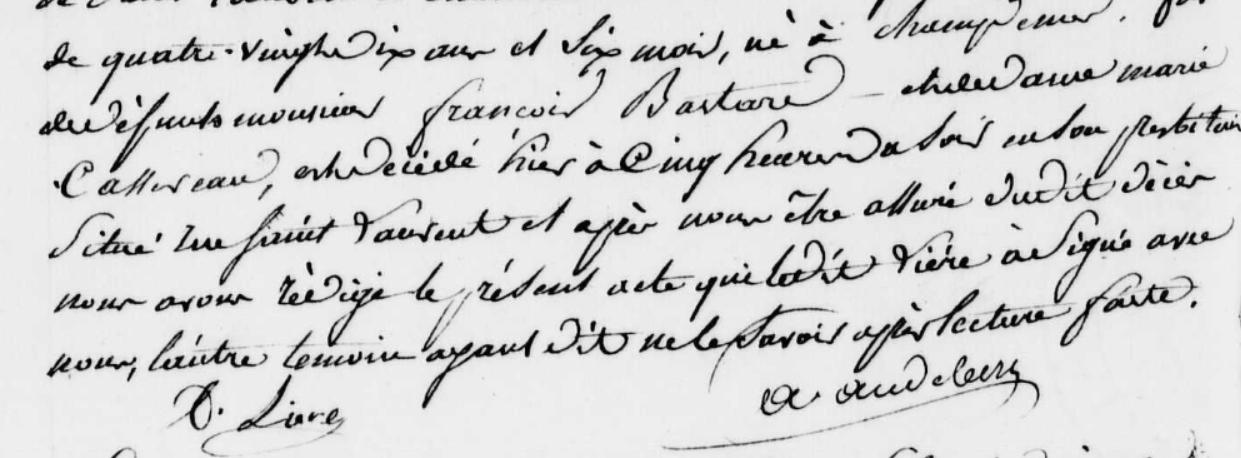 de quatre-vingt dix ans et six mois, né à champdenier. fils
de défunts monsieur françois Bastard et de dame marie
Cattereau, est décédé hier à Cinq heures du soir en son presbitaire
situé rue saint Laurent et après nous être assuré dudit décès
nous avons rédigé le présent acte que ledit Lière à signé avec
nous, l'autre temoin ayant dit ne le savoir après lecture faite.
D. Lière